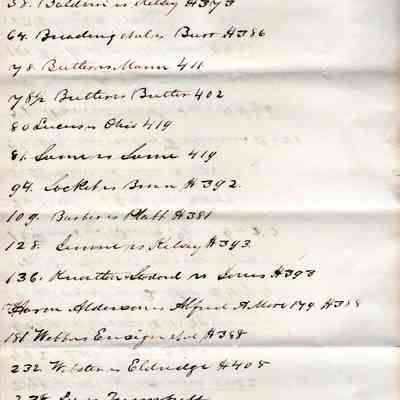 58. Baldwin vs Kelsey #373
64. Breading et al vs Burr #386
78. Butler vs Mann 411
78½ Butler vs Butler 402
80 Lucus vs Ohio 419
81. Same vs Same 419
94. Socket vs Brown #392.
109. Barber vs Platt #381
128. vs Kelsey #393
136. vs Jones #393
Aaron Alderson vs Alfred A More 179 #388
181 Webb vs Ensign et al #388
232 Webster vs Eldredge #405